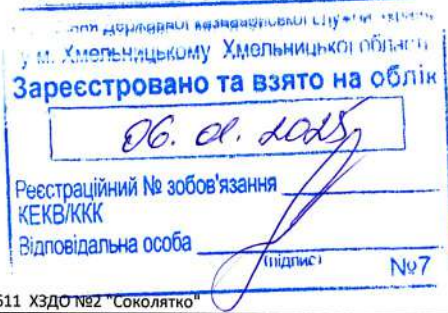 Державної казначейської служби України
у м. Хмельницькому Хмельницької області
Зареєстровано та взято на облік
06. 01. 2025
Реєстраційний № зобов'язання
КЕКВ/ККК
Відповідальна особа
(підпис)
№7
611 ХЗДО №2 "Соколятко"